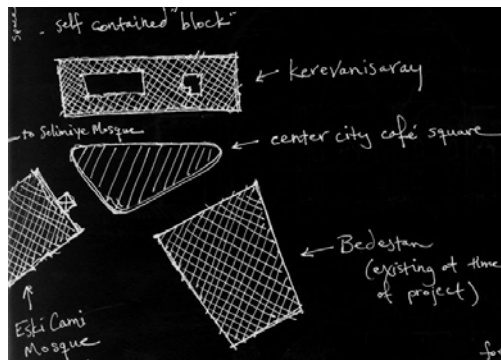 - self contained "block"
← kerevanisaray
← to Selimiye Mosque
← center city café square
← Bedestan
(existing at time
of project)
Eski Cami
Mosque